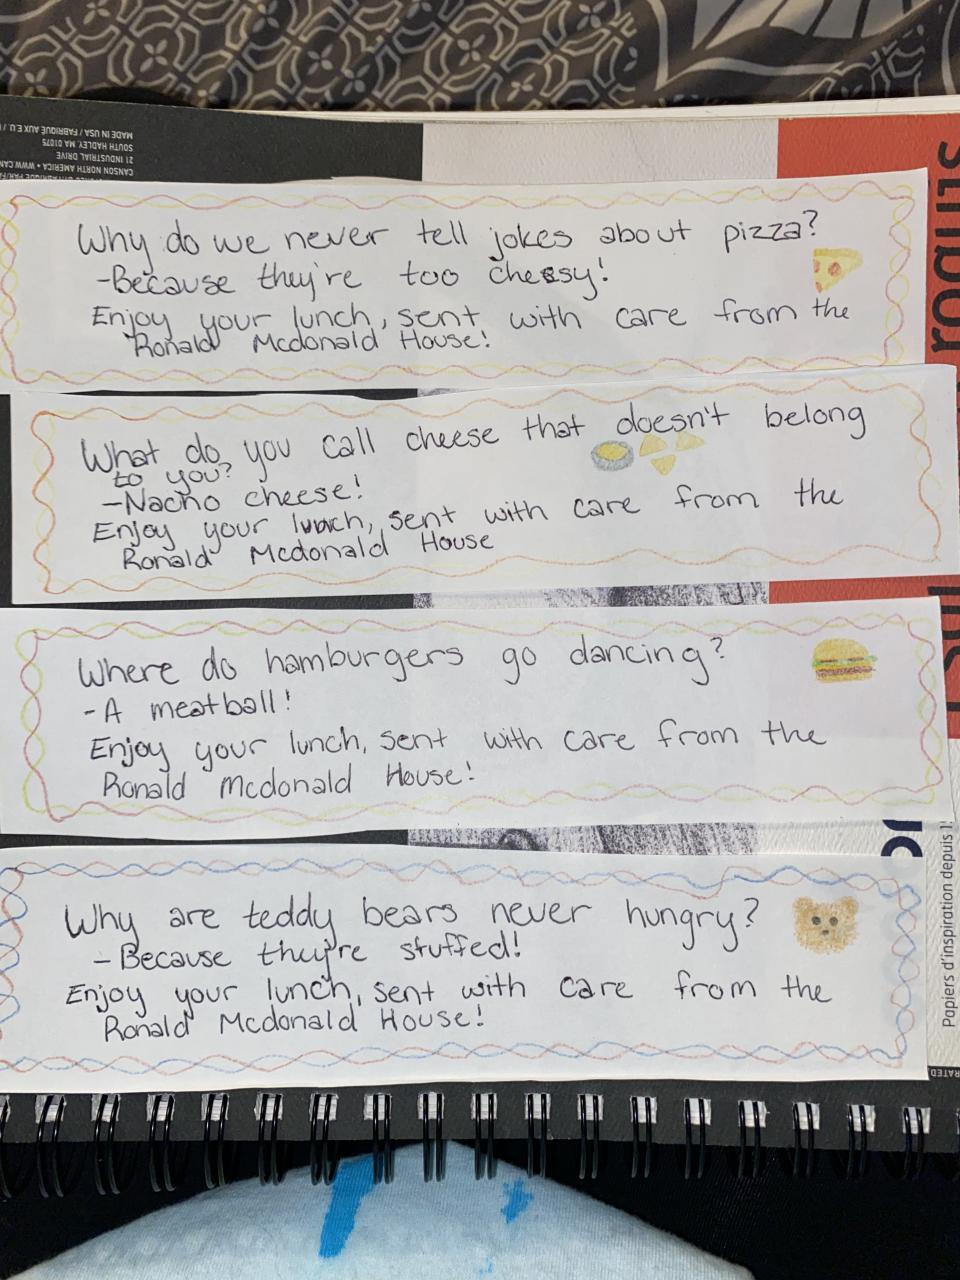 MADE IN USA / FABRIQUÉ AUX E.U. /
SOUTH HADLEY MA 01075
21 INDUSTRIAL DRIVE
CANSON NORTH AMERICA • WWW.CAN
Why do we never tell jokes about pizza?
-Because they're too cheesy!
Enjoy your lunch, sent with care from the
Ronald Mcdonald House!
What do you call cheese that doesn't belong
to you?
-Nacho cheese!
Enjoy your lunch, sent with care from the
Ronald Mcdonald House
Where do hamburgers go dancing?
-A meatball!
Enjoy your lunch, sent with care from the
Ronald Mcdonald House!
Why are teddy bears never hungry?
-Because they're stuffed!
Enjoy your lunch, sent with care from the
Ronald Mcdonald House!
roquis
Papiers d'inspiration depuis 1